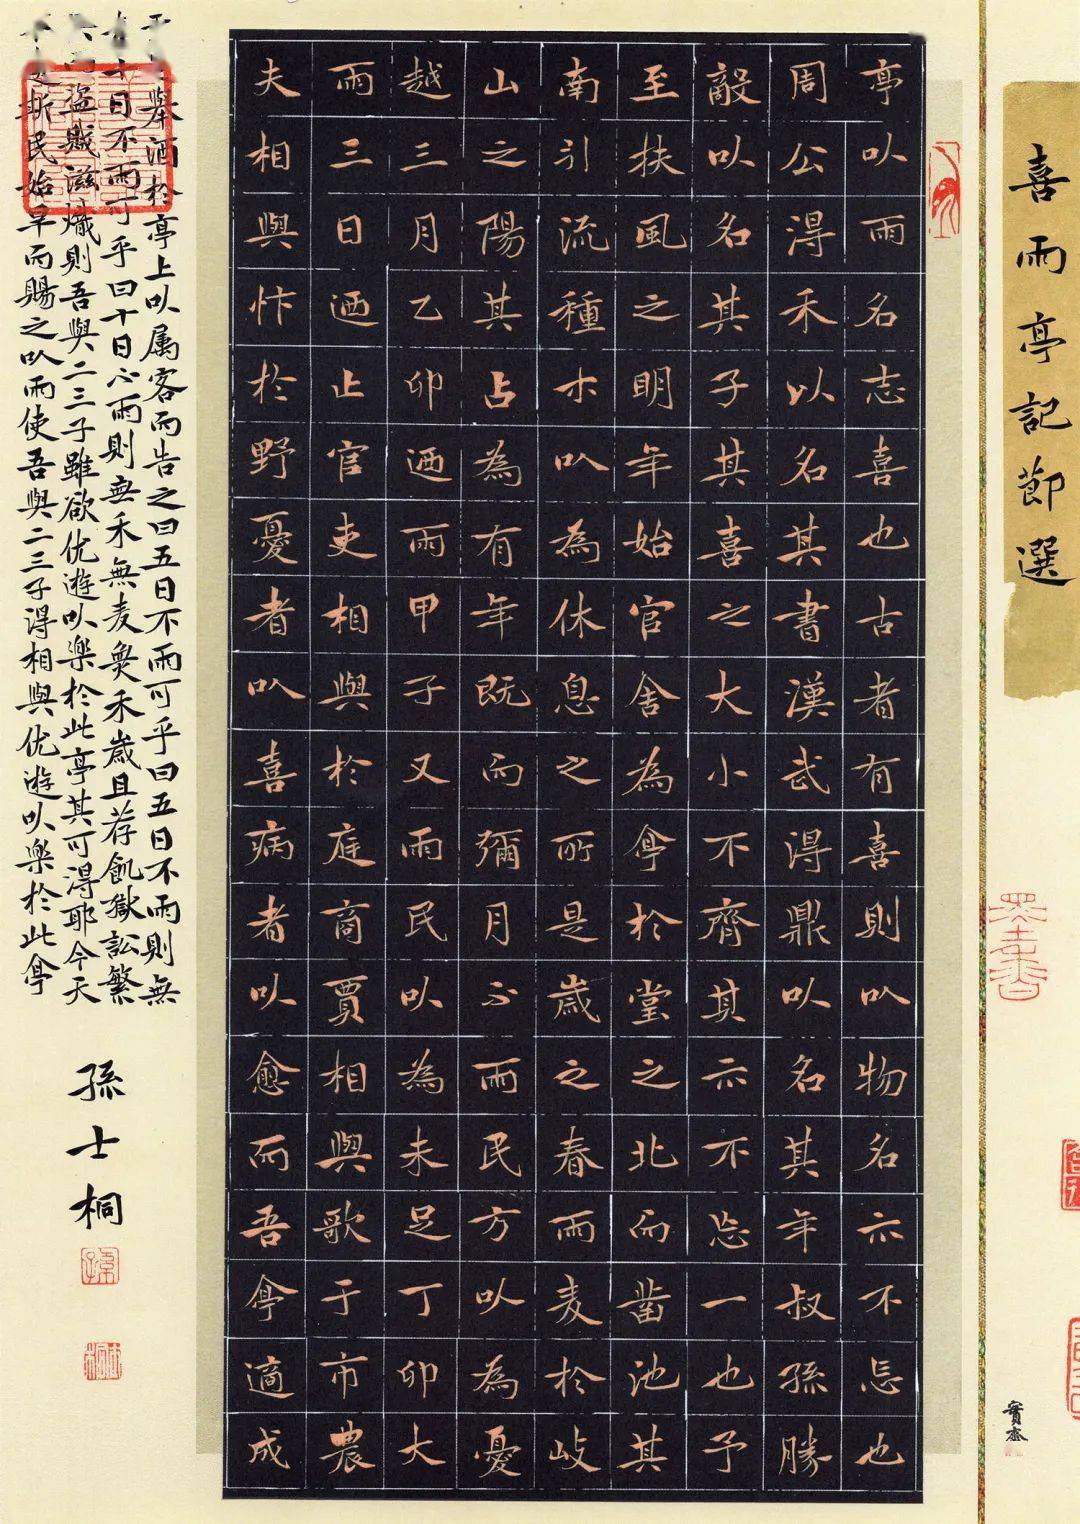 喜雨亭記節選
亭以雨名志喜也古者有喜則以物名示不忘也
周公得禾以名其書漢武得鼎以名其年叔孫勝
敵以名其子其喜之大小不齊其示不忘一也予
至扶風之明年始官舍為亭於堂之北而鑿池其
南引流種木以為休息之所是歲之春雨麦於岐
山之陽其占為有年既而彌月不雨民方以為憂
越三月乙卯迺雨甲子又雨民以為未足丁卯大
雨三日迺止官吏相與於庭商賈相與歌于市農
夫相與忭於野憂者以喜病者以愈而吾亭適成
舉酒於亭上以属客而告之曰五日不雨可乎曰五日不雨則無
十日不雨可乎曰十日不雨則無禾無麦無禾歲且荐飢獄訟繁
而盜賊滋熾則吾與二三子雖欲优遊以樂於此亭其可得耶今天
斯民始旱而賜之以雨使吾與二三子得相與优遊以樂於此亭
孫士桐